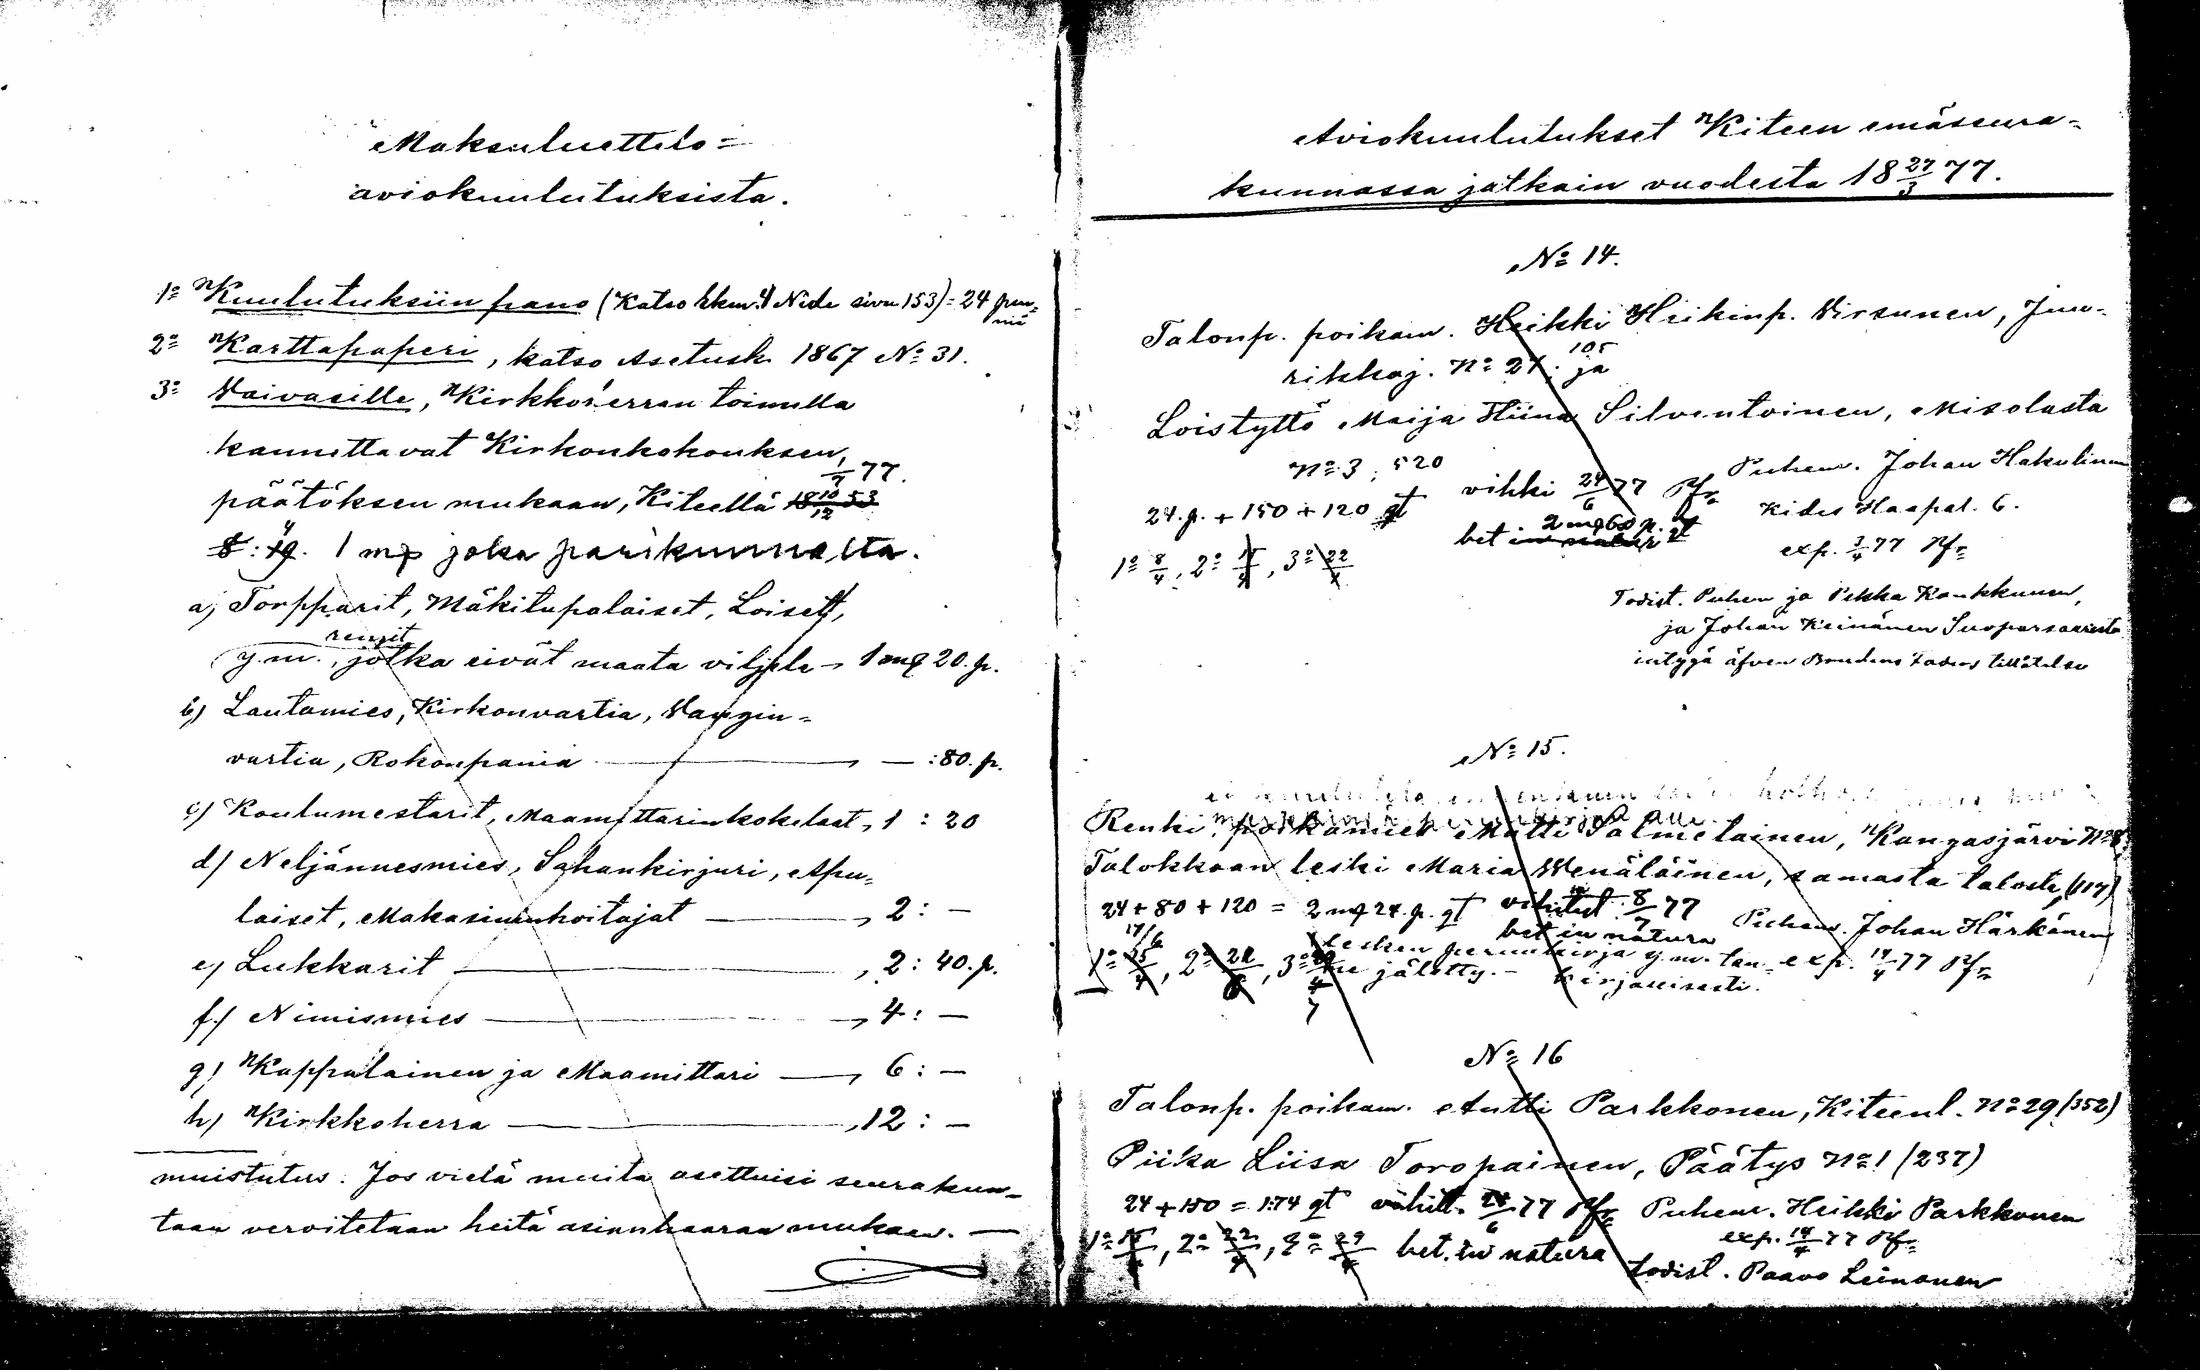 Maksuluettelo=
aviokuulutuksista.
1º Kuulutuksiin pano (Katso Nide sivu 153) = 24 pen-
niä
2º Karttapaperi, katso Asetusk. 1867 Nº 31.
3º Vaivasille, Kirkkoherran toimella
kannettavat Kirkonkokouksen
1/7 77.
päätöksen mukaan, Kiteellä 18 10/12 53
1 mk joka parikunnalta.
a) Torpparit, Mäkitupalaiset, Loiset,
rengit
y.m., jotka eivät maata viljele 1 mk 20. p.
b) Lautamies, Kirkonvartia, Vangin=
vartia, Rokonpania — : 80. p.
c) Koulumestarit, Maamittarinkokelaat, 1 : 20
d) Neljännesmies, Sahankirjuri, Apu=
laiset, Makasiininhoitajat 2 : —
e) Lukkarit 2 : 40. p.
f) Nimismies 4 : —
g) Kappalainen ja Maamittari 6 : —
h) Kirkkoherra 12 : —
muistutus. Jos vielä muita asettuisi seurakun=
taan veroitetaan heitä asianhaaran mukaan. —
Aviokuulutukset Kiteen emäseura=
kunnassa jatkain vuodesta 18 27/3 77.
Nº 14.
Talonp. poikam. Heikki Heikinp. Hirsunen, Juu-
rikkaj. Nº 27. 105 ja
Loistyttö Maija Stiina Silventoinen, Misolasta
Nº 3, 520
vihki 24/6 77
Puhem. Johan Hakulinen
24. p. + 150 + 120 gt
Kides Haapal. 6.
2 mk 60 p. gt
bet in natura
exp. 3/4 77
1º 8/4, 2º 15/4, 3º 22/4
Todist. Puhem ja Pekka Kankkunen,
ja Johan Keinänen Suoparsaaresta
intyga äfven Brudens faders tillåtelse
Nº 15.
Renki, poikamies Matti Salmelainen, Kangasjärvi Nº 8
Talokkaan leski Maria Wenäläinen, samasta talosta, (117)
24 + 80 + 120 = 2 mk 24. p. gt vihityt 8/7 77
bet in natura
Puhem. Johan Härkönen
17/6
lesken perunkirja y.m.
jätetty. — kirjallisesti.
exp. 14/4 77
Nº 16
Talonp. poikam. Antti Parkkonen, Kiteenl. Nº 29 (352)
Piika Liisa Toropainen, Päätys Nº 1 (237)
24 + 150 = 1:74 gt vihit. 24/6 77 Puhem. Heikki Parkkonen
exp. 14/4 77
1º 15/4, 2º 22/4, 3º 29/4 bet. in natura
todist. Paavo Leinonen